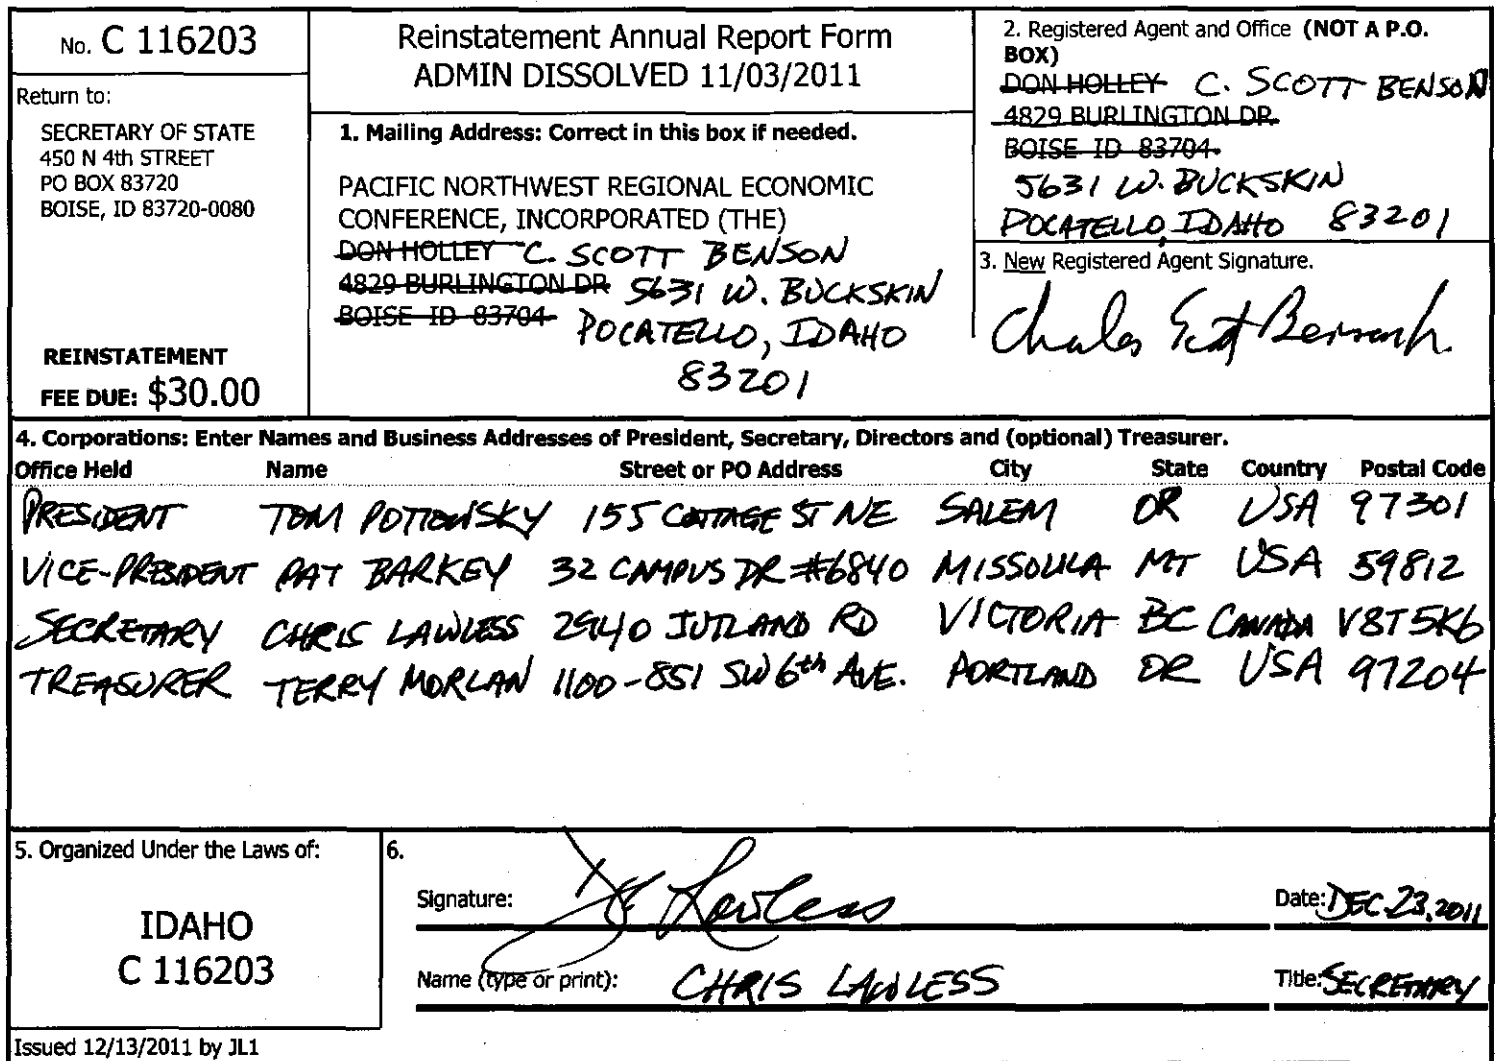 No. C 116203
Return to:
SECRETARY OF STATE
450 N 4th STREET
PO BOX 83720
BOISE, ID 83720-0080
REINSTATEMENT
FEE DUE: $30.00
Reinstatement Annual Report Form
ADMIN DISSOLVED 11/03/2011
1. Mailing Address: Correct in this box if needed.
PACIFIC NORTHWEST REGIONAL ECONOMIC
CONFERENCE, INCORPORATED (THE)
DON HOLLEY C. SCOTT BENSON
4829 BURLINGTON DR 5631 W. BUCKSKIN
BOISE ID 83704 POCATELLO, IDAHO
83201
2. Registered Agent and Office (NOT A P.O.
BOX)
DON HOLLEY C. SCOTT BENSON
4829 BURLINGTON DR
BOISE ID 83704
5631 W. BUCKSKIN
POCATELLO, IDAHO 83201
3. New Registered Agent Signature.
Charles Scott Benson
4. Corporations: Enter Names and Business Addresses of President, Secretary, Directors and (optional) Treasurer.
Office Held Name Street or PO Address City State Country Postal Code
PRESIDENT TOM 155 COTTAGE ST NE SALEM OR USA 97301
VICE-PRESIDENT PAT BARKEY 32 CAMPUS DR #6840 MISSOULA MT USA 59812
SECRETARY CHRIS LAWLESS 2940 JUTLAND RD VICTORIA BC CANADA V8T5K6
TREASURER TERRY MORLAN 1100-851 SW 6th AVE. PORTLAND OR USA 97204
5. Organized Under the Laws of:
IDAHO
C 116203
6.
Signature: Lawless Date: DEC.23,2011
Name (type or print): CHRIS LAWLESS Title: SECRETARY
Issued 12/13/2011 by JL1